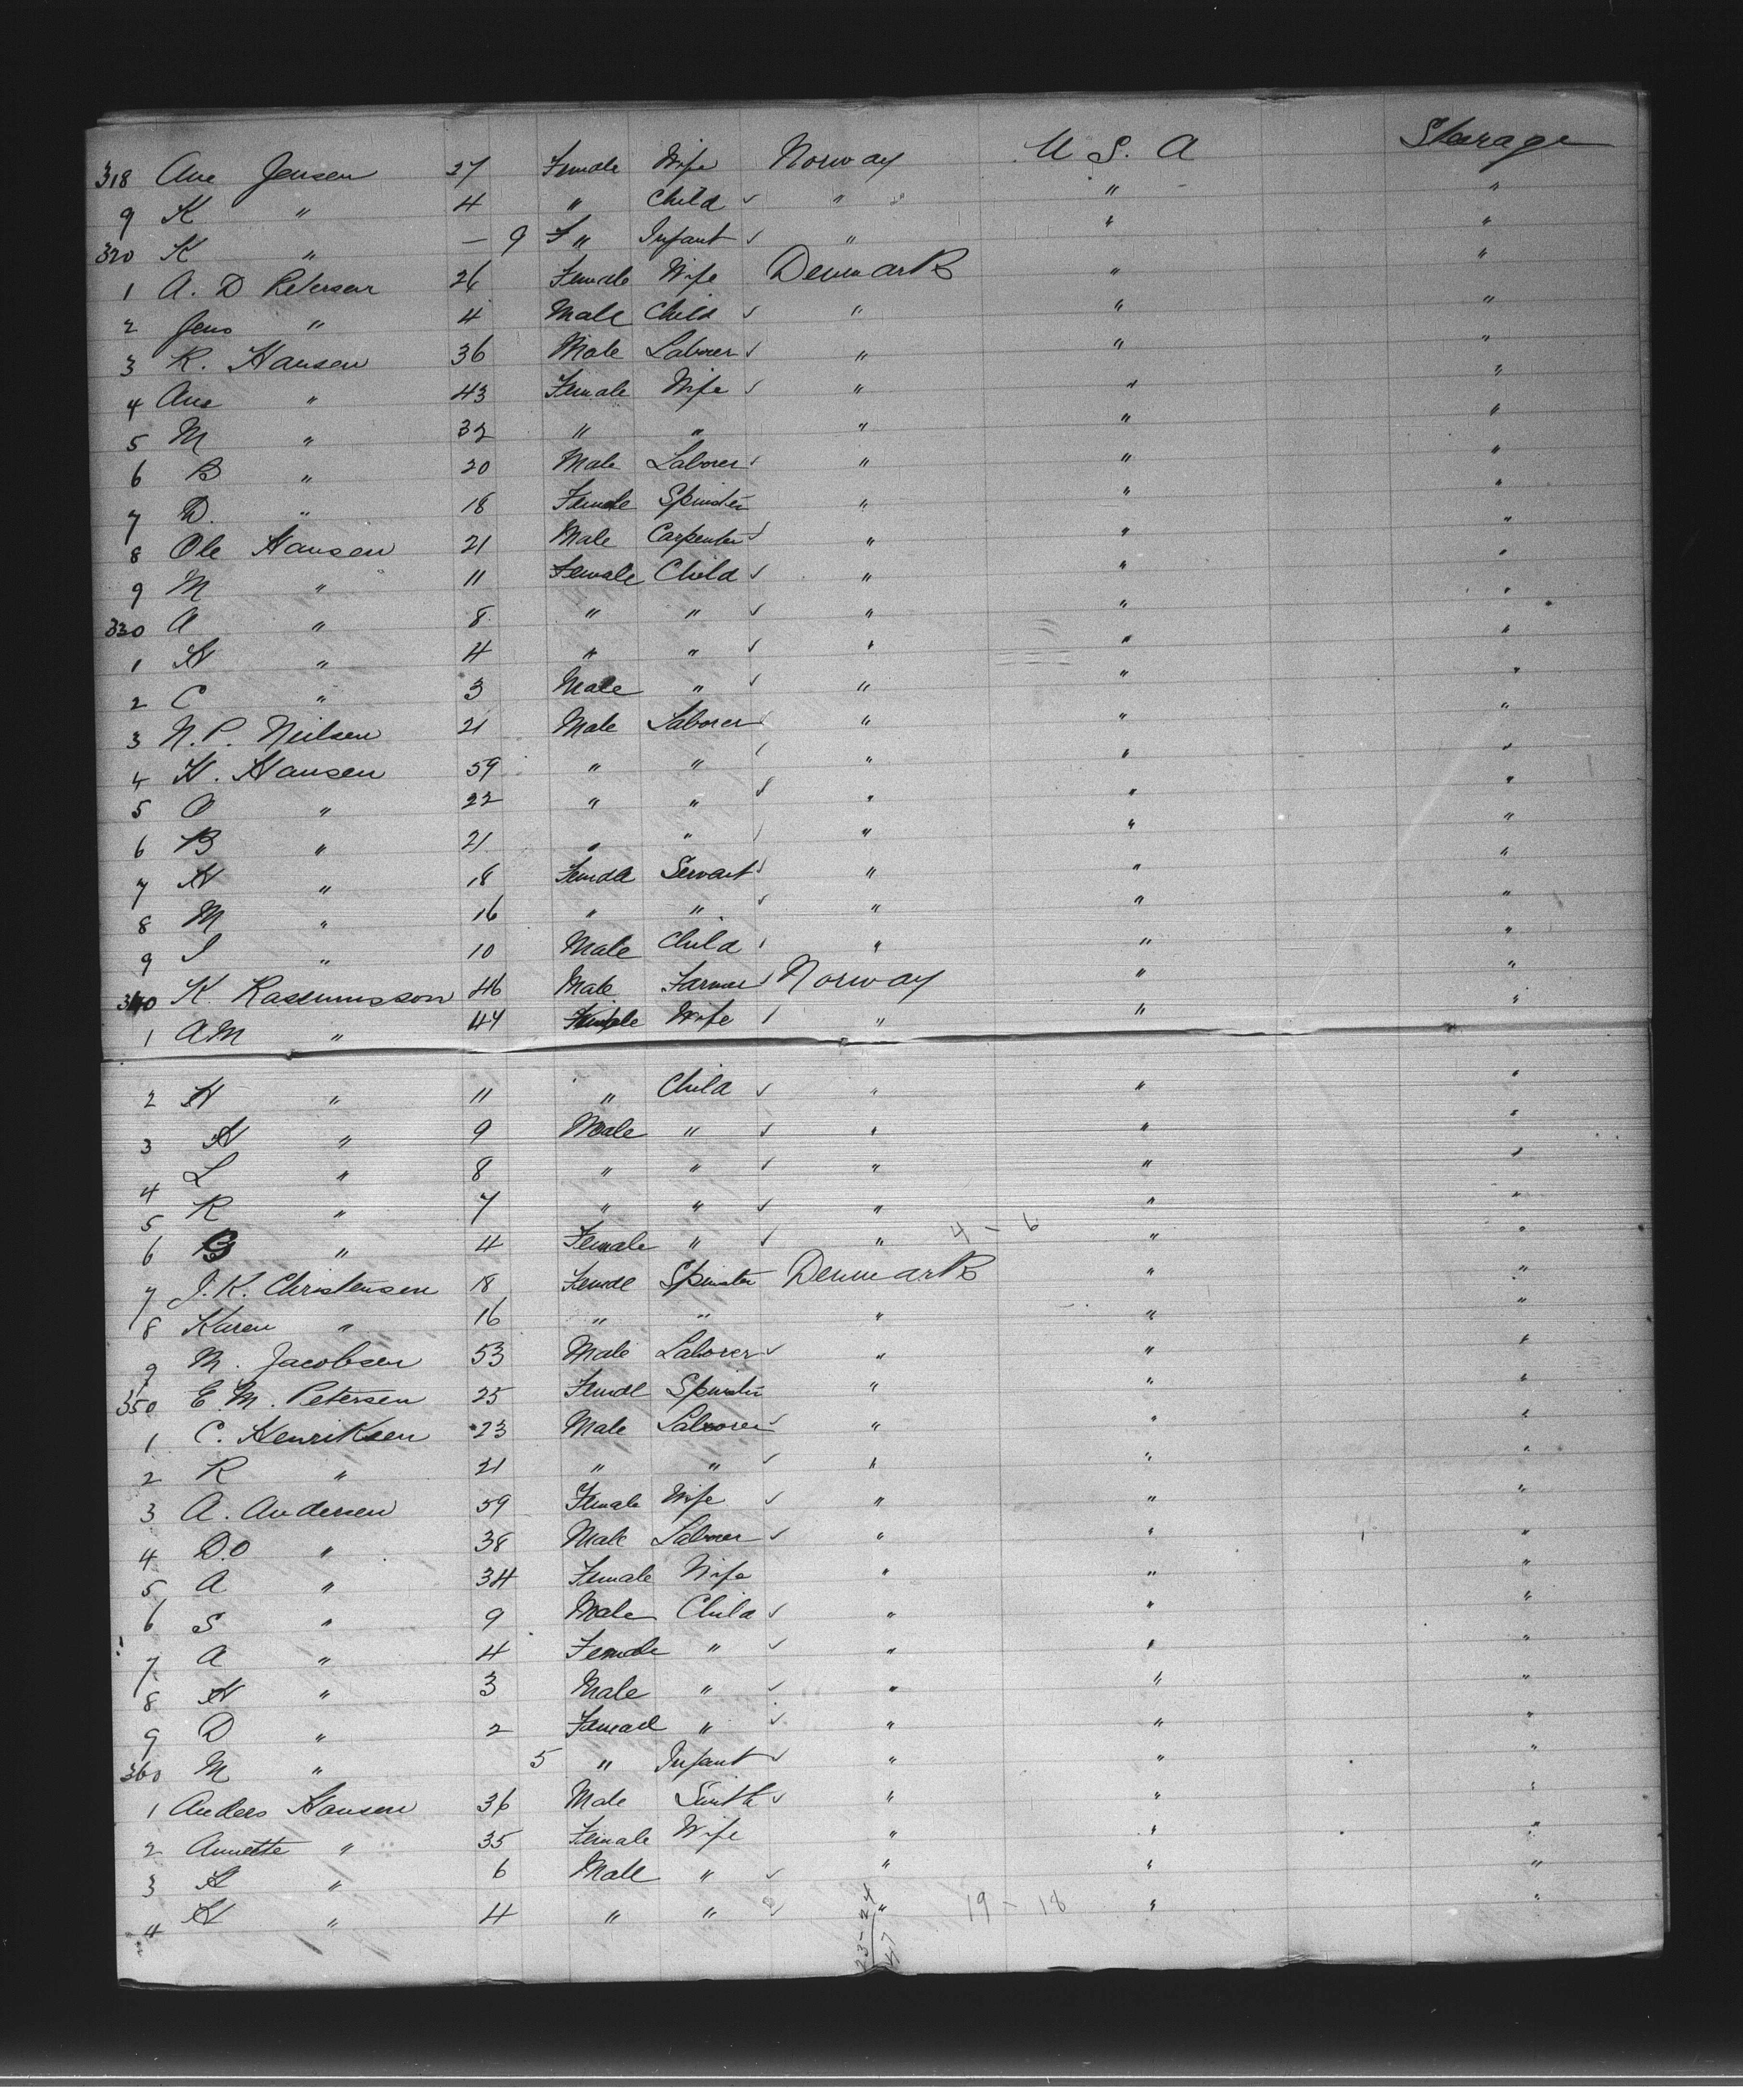 318 Ane Jensen 27 Female Wife Norway U S. A Sterage
9 K " 4 " Child ✓ " " "
320 K " — 9 F " Infant ✓ " " "
1 A. D Petersen 26 Female Wife Denmark " "
2 Jens " 4 Male Child ✓ " " "
3 R. Hansen 36 Male Laborer ✓ " " "
4 Ane " 43 Female Wife ✓ " " "
5 M " 32 " " " " "
6 B " 20 Male Laborer ✓ " " "
7 D. " 18 Female Spinster " " "
8 Ole Hansen 21 Male Carpenter ✓ " " "
9 M " 11 Female Child ✓ " " "
330 A " 8 " " ✓ " " "
1 H " 4 " " ✓ " " "
2 C " 3 Male " ✓ " " "
3 N. P. Neilsen 21 Male Laborer ✓ " " "
4 H. Hansen 59 " " ✓ " " "
5 O " 22 " " ✓ " " "
6 B " 21 " " ✓ " " "
7 H " 18 Female Servant ✓ " " "
8 M " 16 " " ✓ " " "
9 I " 10 Male Child ✓ " " "
340 K. Rasmusson 46 Male Farmer ✓ Norway " "
1 A M " 44 Female Wife ✓ " " "
2 H " 11 " Child ✓ " " "
3 H " 9 Male " ✓ " " "
4 L " 8 " " ✓ " " "
5 R " 7 " " ✓ " " "
6 G " 4 Female " ✓ " 4 - 6 " "
7 J. K. Christensen 18 Female Spinster Denmark " "
8 Karen " 16 " " " " "
9 M. Jacobsen 53 Male Laborer ✓ " " "
350 E. M. Petersen 25 Female Spinster " " "
1 C. Henriksen 23 Male Laborer ✓ " " "
2 R " 21 " " ✓ " " "
3 A. Andersen 59 Female Wife ✓ " " "
4 D. O " 38 Male Laborer ✓ " " "
5 A " 34 Female Wife " " "
6 S " 9 Male Child ✓ " " "
7 A " 4 Female " ✓ " " "
8 H " 3 Male " ✓ " " "
9 D " 2 Female " ✓ " " "
360 M " 5 " Infant ✓ " " "
1 Anders Hansen 36 Male Smith ✓ " " "
2 Annette " 35 Female Wife " " "
3 H " 6 Male " ✓ " " "
4 H " 4 " " ✓ " 19 - 18 " "
23-24
47